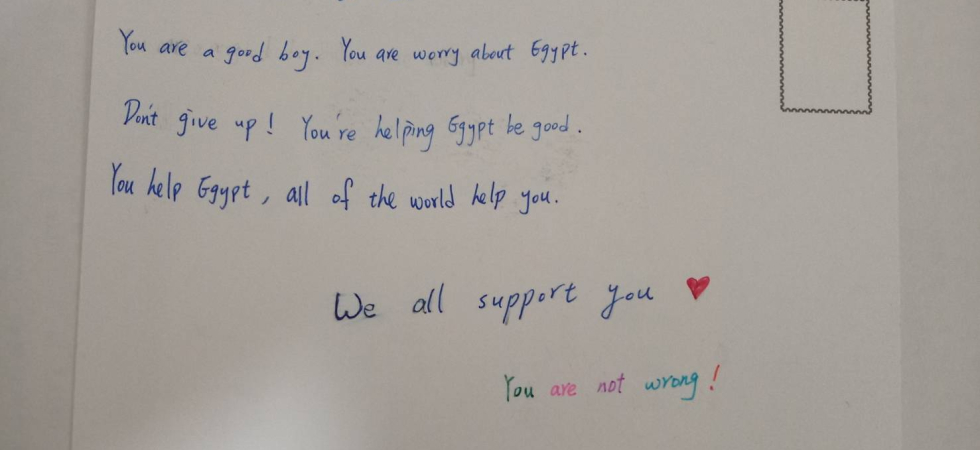 You are a good boy. You are worry about Egypt.
Don't give up! You're helping Egypt be good.
You help Egypt, all of the world help you.
We all support you ♥
You are not wrong!